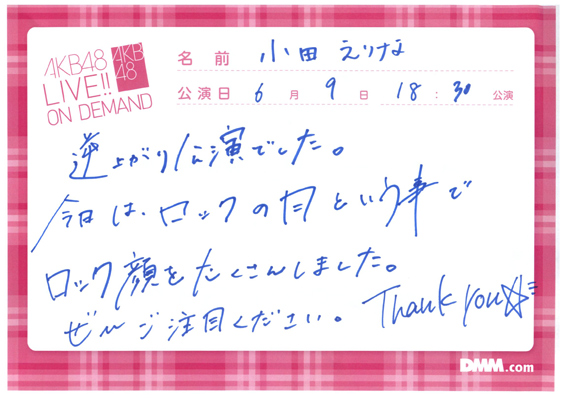 AKB48
LIVE!!
ON DEMAND
AKB
48
名前 小田えりな
公演日 6月9日 18:30 公演
逆上がり公演でした。
今日は、ロックの日という事で
ロック顔をたくさんしました。
ぜひご注目ください。 Thank you☆
DMM.com